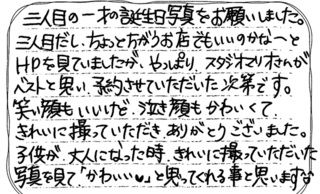 三人目の一才の誕生日写真をお願いしました。
三人目だし、ちょっとちがうお店でもいいのかな〜と
HPを見ていましたが、やっぱり、スタジオマリオさんが
ベストと思い、予約させていただいた次第です。
笑い顔もいいけど、泣き顔もかわいくて
きれいに撮っていただき、ありがとうございました。
子供が、大人になった時、きれいに撮っていただいた
写真を見て「かわいい♥」と思ってくれる事と思いますな